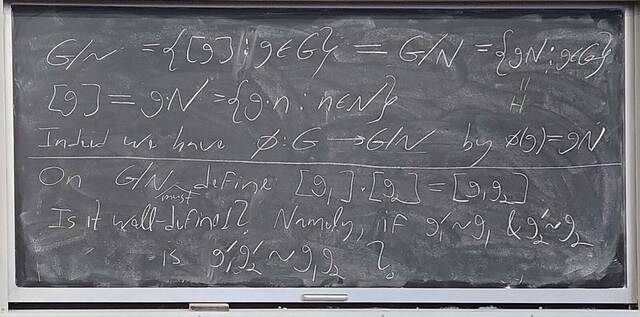 G/~ = {[g] : g ∈ G} = G/N = {gN : g ∈ G}
[g] = gN = {g·n : n ∈ N}
H
Indeed we have φ : G → G/N by φ(g) = gN
On G/N define [g₁]·[g₂] = [g₁g₂]
must
Is it well-defined? Namely, if g₁' ~ g₁ & g₂' ~ g₂
is g₁'g₂' ~ g₁g₂ ?